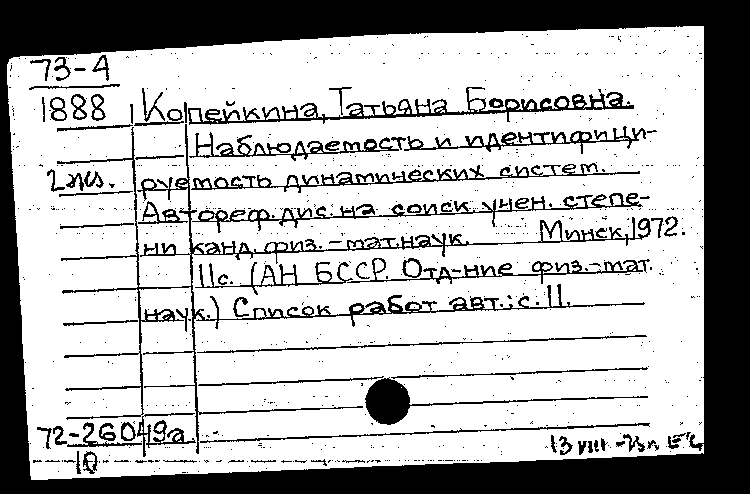 73-4
1888 Копейкина, Татьяна Борисовна.
Наблюдаемость и идентифици-
2 экз. руемость динамических систем.
Автореф. дис. на соиск. учен. степе-
ни канд. физ.-мат. наук. Минск, 1972.
11с. (АН БССР. Отд-ние физ.-мат.
наук.) Список работ авт.: с. 11.
72-26049а
10
13 VIII